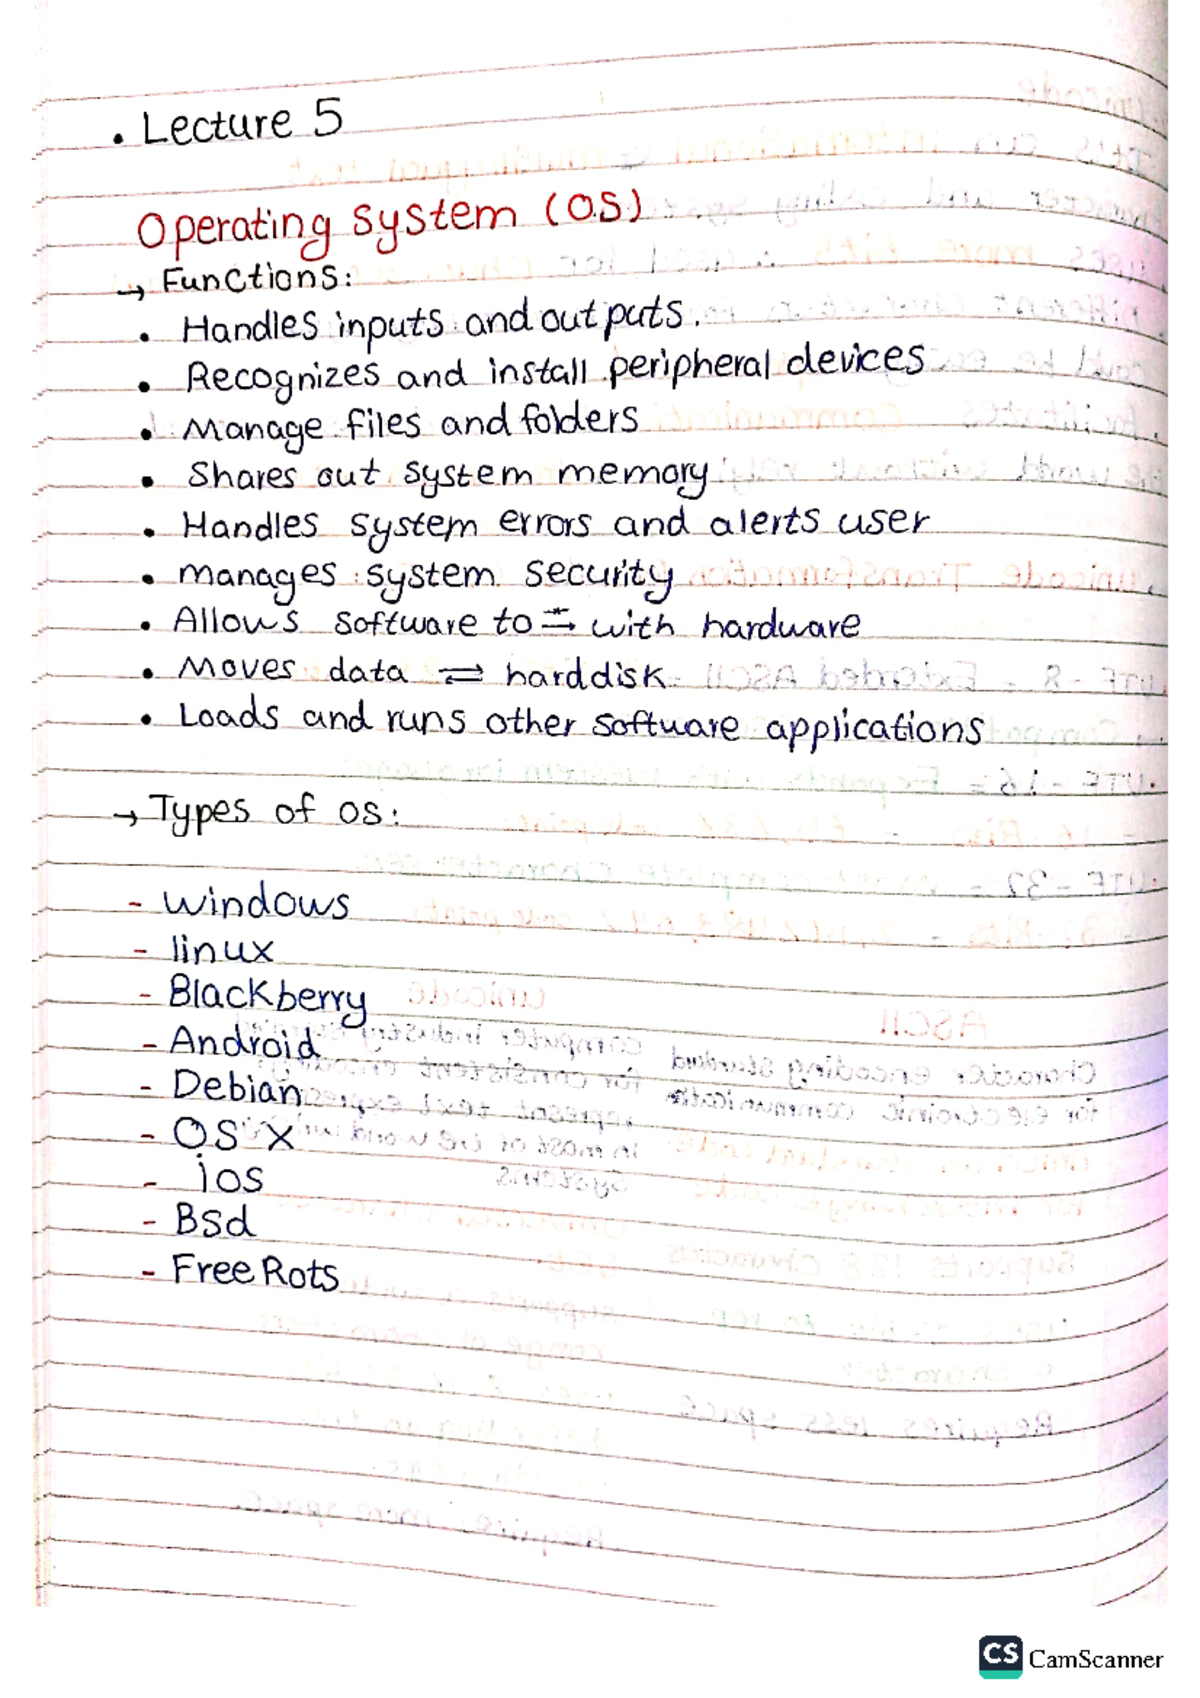 • Lecture 5
Operating System (O.S)
→ Functions:
• Handles inputs and outputs.
• Recognizes and install peripheral devices
• Manage files and folders
• Shares out system memory
• Handles system errors and alerts user
• manages system security
• Allows software to ⇆ with hardware
• Moves data ⇌ harddisk
• Loads and runs other software applications
→ Types of os:
- windows
- linux
- Blackberry
- Android
- Debian
- OS X
- ios
- Bsd
- Free Rots
CS CamScanner